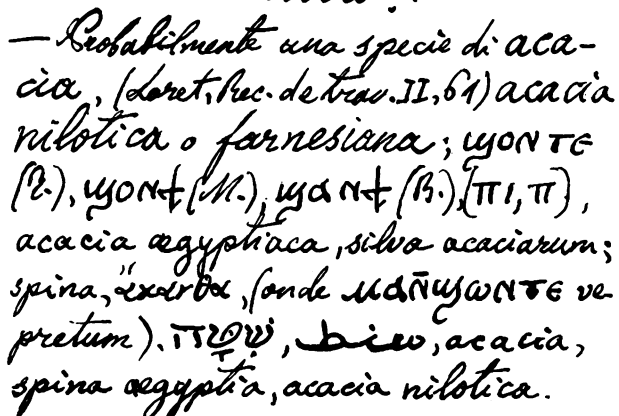 — Probabilmente una specie di aca-
cia, (Loret, Rec. de trav. II, 61) acacia
nilotica o farnesiana; ϣⲟⲛⲧⲉ
(T.), ϣⲟⲛϯ (M.), ϣⲁⲛϯ (B.), (ⲡⲓ, ⲡ),
acacia ægyptiaca, silva acaciarum;
spina, ἄκανθα, (onde ⲙⲁⲛ̄ϣⲱⲛⲧⲉ ve
pretum). שִׁטָּה, سنط, acacia,
spina ægyptia, acacia nilotica.